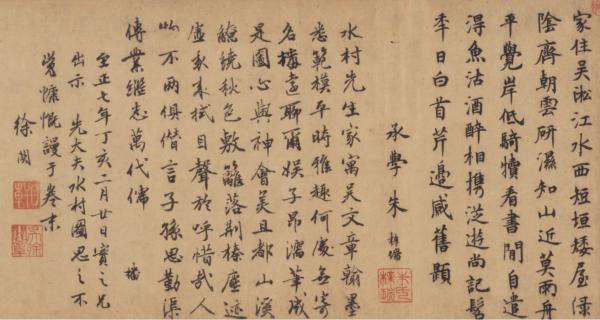 家住吳淞江水西短垣矮屋綠
陰齊朝雲研濕知山近莫雨舟
平覺岸低騎犢看書閒自遣
得魚沽酒醉相携從遊尚記髫
年日白首芹邊感舊題
承學朱
水村先生家寓吳文章翰墨
悉範模平時雅趣何處無寄
名遠聊爾娛子昂濡筆成
是圖心與神會美且都山溪
繞秋色敷籬落荆榛塵迹
虛我來拭目聲於呼惜哉人
此不兩俱借言子孫思勤渠
傳業繼志萬代儒
至正七年丁亥二月廿日實之兄
出示 先大夫水村圖思之不
覺慷慨謾于卷末
徐關